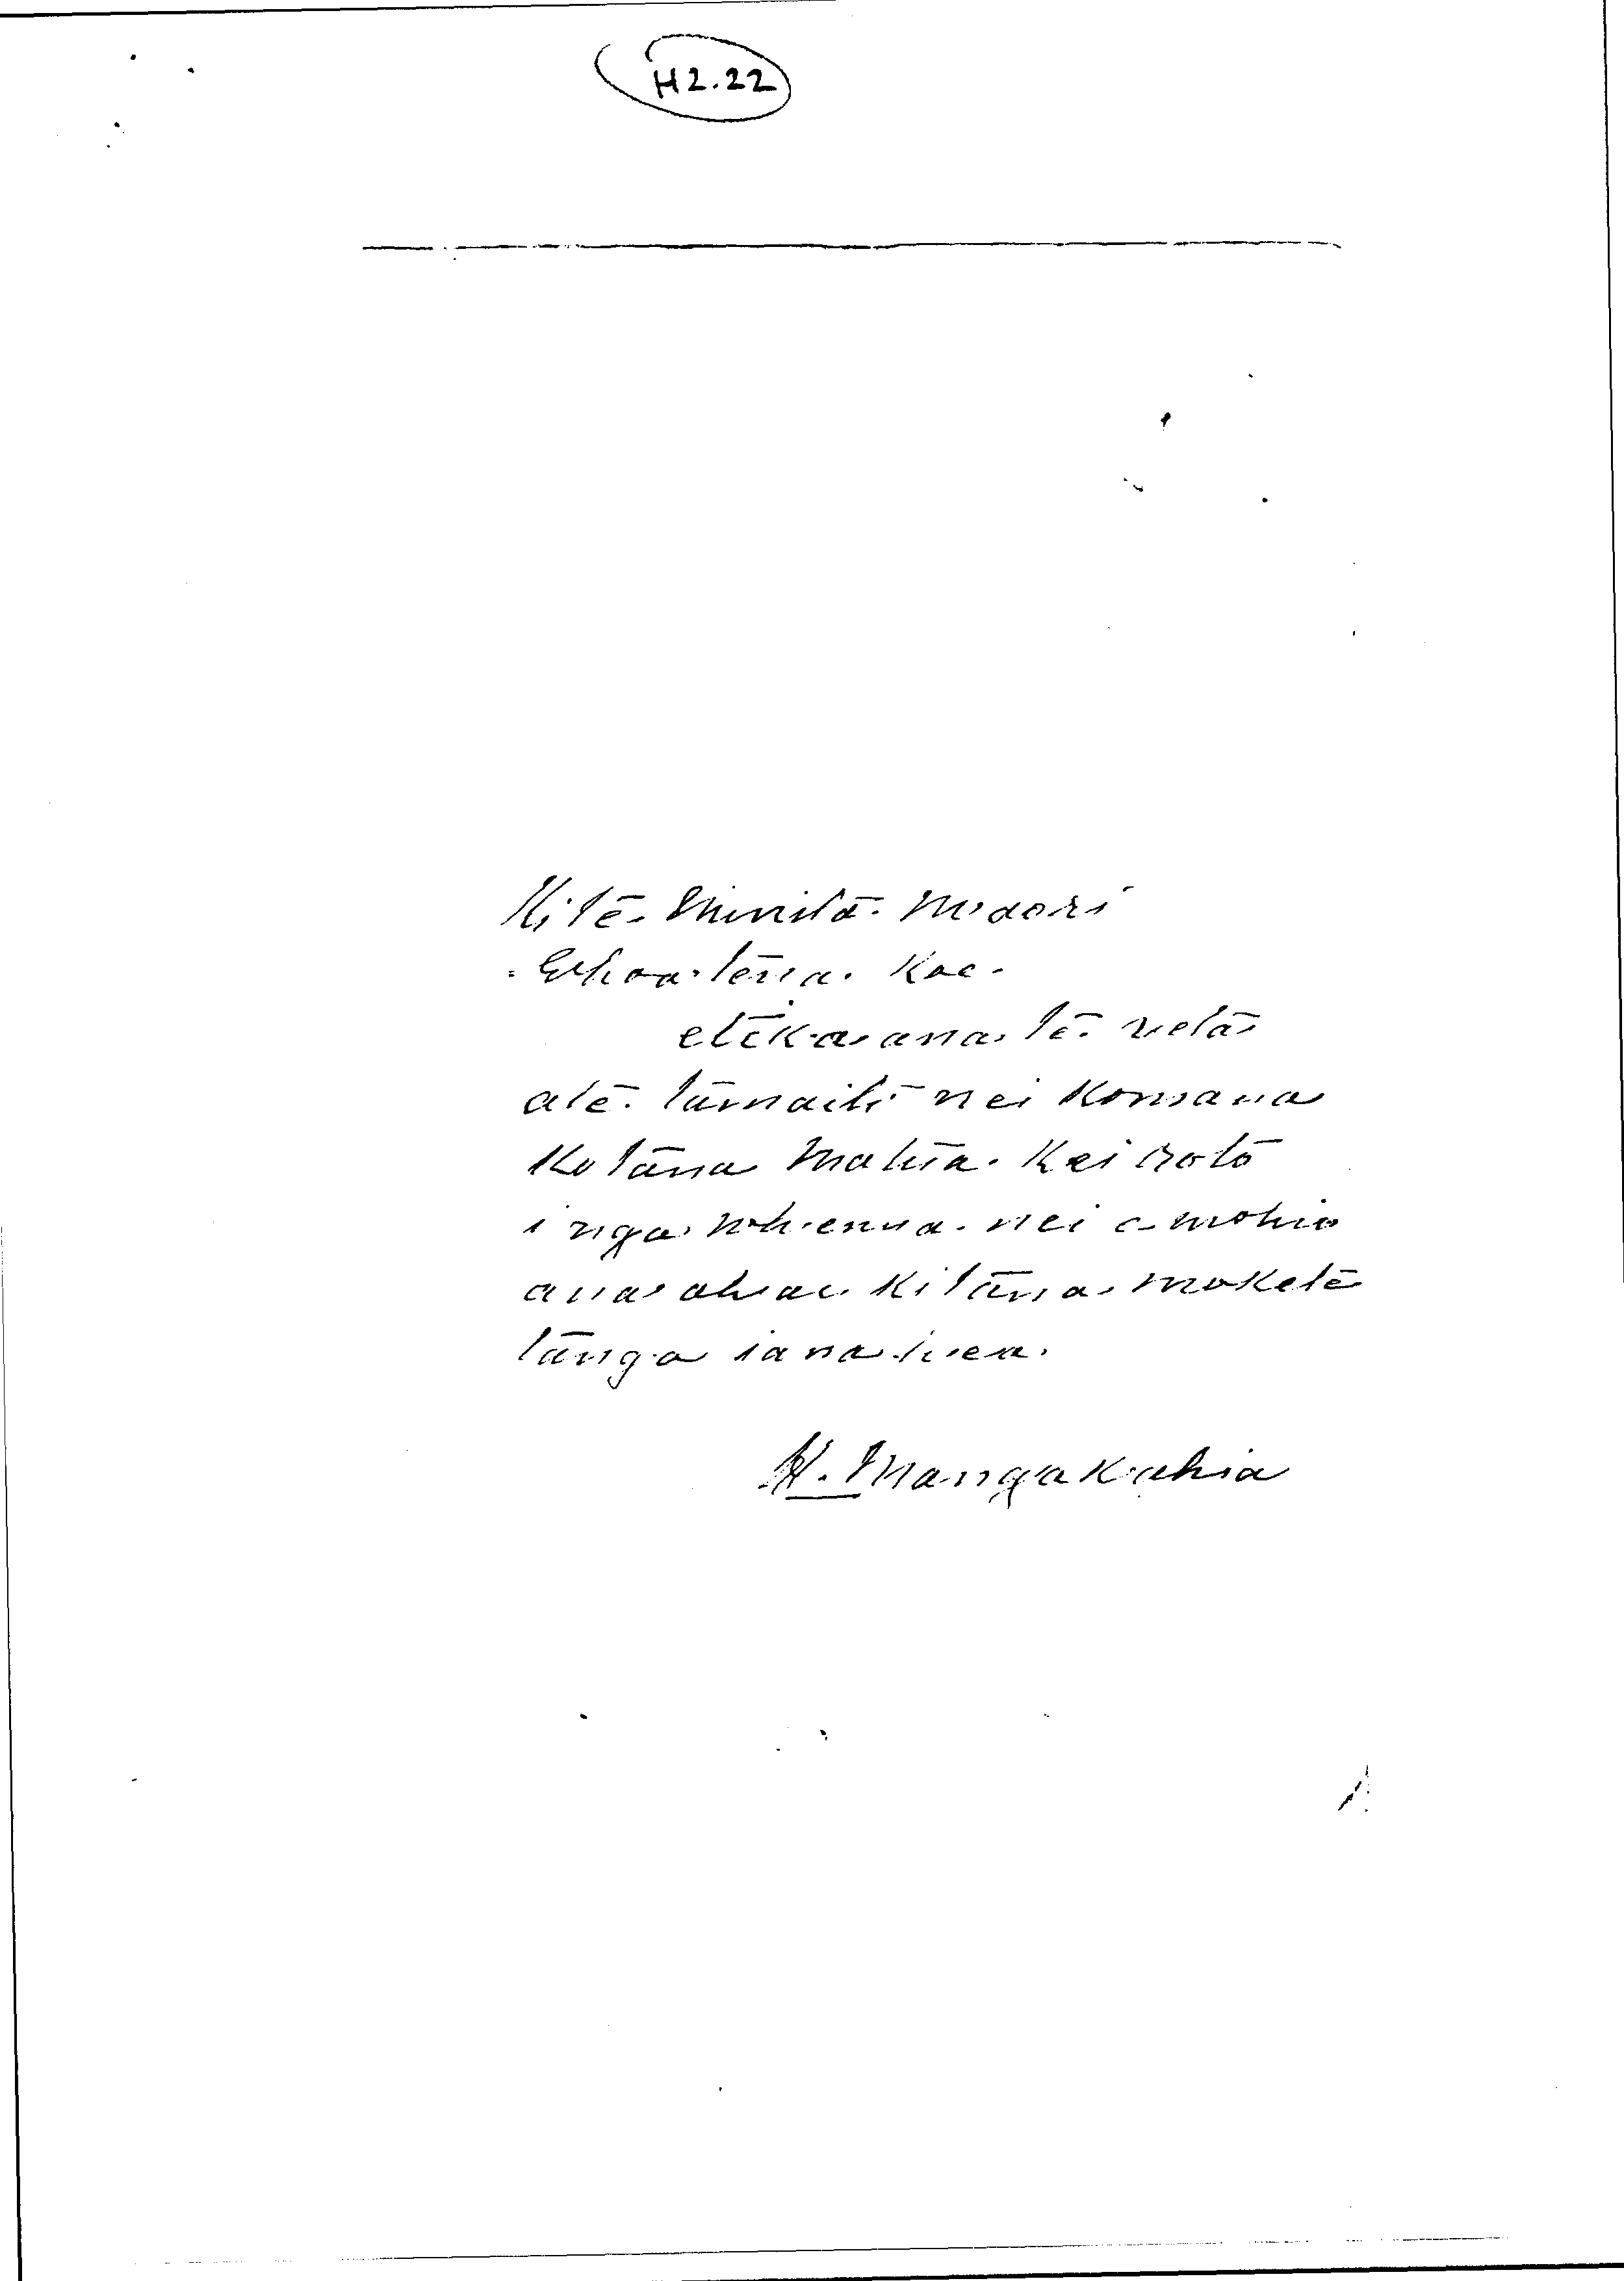 H2.22
Kite. Minita. Maori
Ehoa. tena. Koe.
etika ana. te. reta
ate. tamaiti nei
Kotana Mahia. Kei roto
i nga. Whenua. nei e mohio
ana ahau. Kitana. mokete
tanga iana hea.
H. Mangakahia